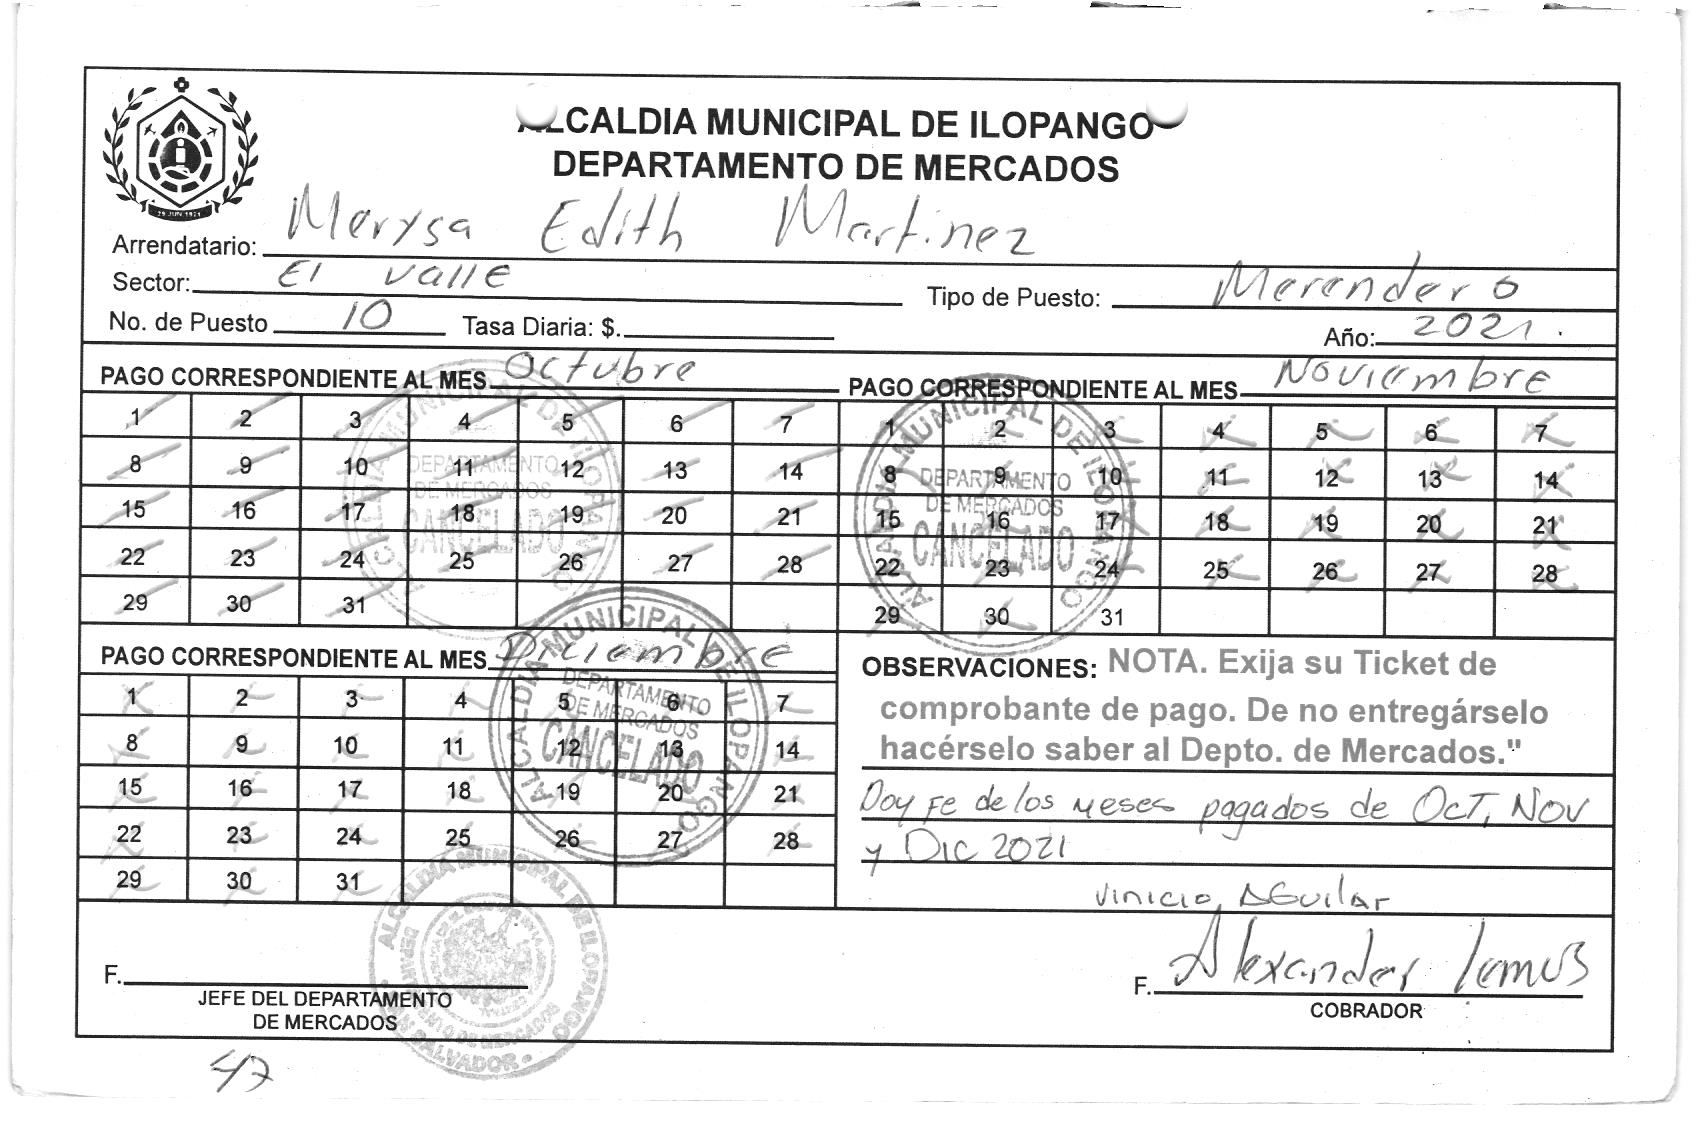 ALCALDIA MUNICIPAL DE ILOPANGO
DEPARTAMENTO DE MERCADOS
29 JUN 1971
Arrendatario: Merysa Edith Martinez
Sector: El valle Tipo de Puesto: Merendero
No. de Puesto 10 Tasa Diaria: $. Año: 2021.
PAGO CORRESPONDIENTE AL MES Octubre
1 2 3 4 5 6 7
8 9 10 11 12 13 14
15 16 17 18 19 20 21
22 23 24 25 26 27 28
29 30 31
ALCALDIA MUNICIPAL DE ILOPANGO
DEPARTAMENTO
DE MERCADOS
CANCELADO
PAGO CORRESPONDIENTE AL MES Noviembre
1 2 3 4 5 6 7
8 9 10 11 12 13 14
15 16 17 18 19 20 21
22 23 24 25 26 27 28
29 30 31
ALCALDIA MUNICIPAL DE ILOPANGO
DEPARTAMENTO
DE MERCADOS
CANCELADO
PAGO CORRESPONDIENTE AL MES Diciembre
1 2 3 4 5 6 7
8 9 10 11 12 13 14
15 16 17 18 19 20 21
22 23 24 25 26 27 28
29 30 31
ALCALDIA MUNICIPAL DE ILOPANGO
DEPARTAMENTO
DE MERCADOS
CANCELADO
OBSERVACIONES: NOTA. Exija su Ticket de
comprobante de pago. De no entregárselo
hacérselo saber al Depto. de Mercados."
Doy Fe de los meses pagados de Oct, Nov
y Dic 2021
Vinicio Aguilar
F.
JEFE DEL DEPARTAMENTO
DE MERCADOS
ALCALDIA MUNICIPAL DE ILOPANGO
DEPARTAMENTO DE MERCADOS
SAN SALVADOR.
F. Alexander Lemus
COBRADOR
47